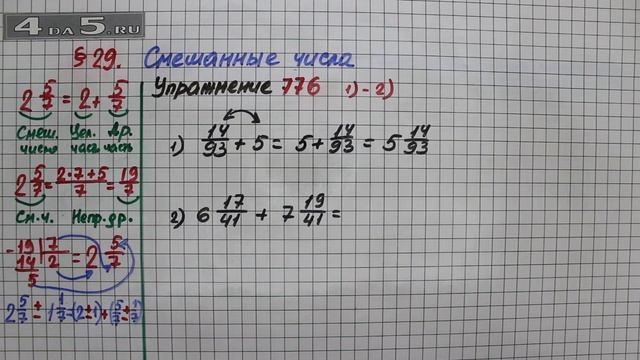 4DA5.RU
§ 29. Смешанные числа
Упражнение 776 1)-2)
2 5/7 = 2 + 5/7
Смеш. число Цел. часть Др. часть
2 5/7 = 2·7+5/7 = 19/7
См.ч. Непр.др.
-19 | 7
14 | 2
5
= 2 5/7
2 5/7 ± 1 1/7 = (2±1)+(5/7±1/7)
1) 14/93 + 5 = 5 + 14/93 = 5 14/93
2) 6 17/41 + 7 19/41 =